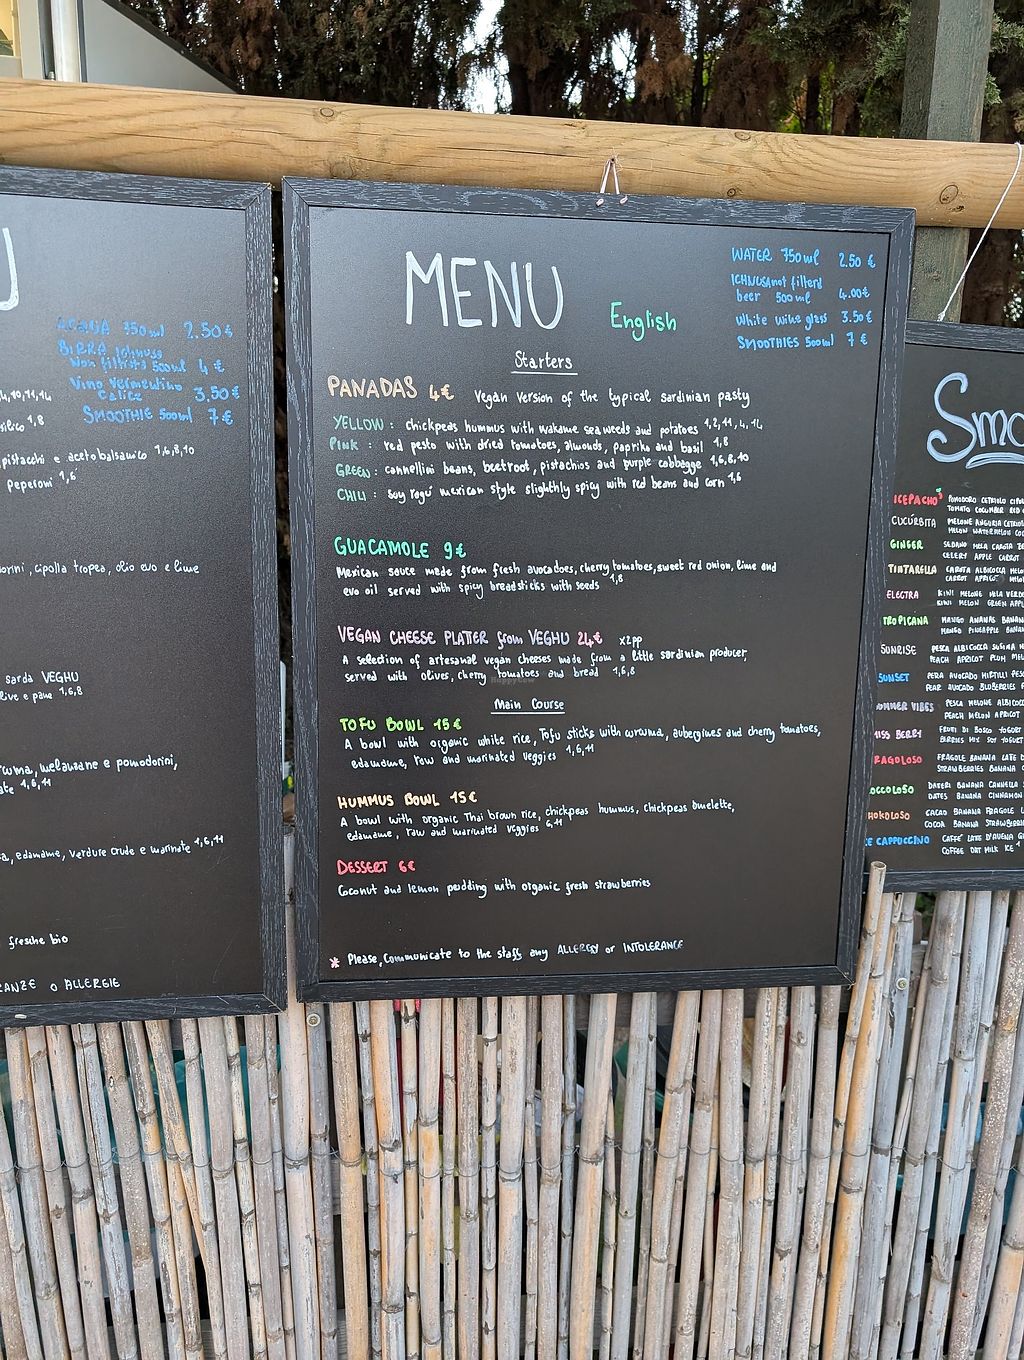 ACQUA 750ml 2.50€
BIRRA Ichnusa
Non filtrata 500ml 4 €
Vino Vermentino
calice 3,50€
SMOOTHIE 500ml 7€
1,8
pistacchi e aceto balsamico 1,6,8,10
peperoni 1,6
cipolla tropea, olio evo e lime
sarda VEGHU
e pane 1,6,8
melanzane e pomodorini,
1,6,11
edamame, verdure crude e marinate 1,6,11
fresche bio
O ALLERGIE
MENU
English
WATER 750ml 2.50 €
ICHNUSA not filterd
beer 500ml 4.00€
White wine glass 3.50€
SMOOTHIES 500ml 7 €
Starters
PANADAS 4€ Vegan version of the typical sardinian pasty
YELLOW: chickpeas hummus with wakame seaweeds and potatoes 1,2,11,4,14
PINK: red pesto with dried tomatoes, almonds, paprika and basil 1,8
GREEN: cannellini beans, beetroot, pistachios and purple cabbagge 1,6,8,10
CHILI: soy ragú mexican style slightly spicy with red beans and corn 1,6
GUACAMOLE 9€
Mexican sauce made from fresh avocadoes, cherry tomatoes, sweet red onion, lime and
evo oil served with spicy breadsticks with seeds 1,8
VEGAN CHEESE PLATTER from VEGHU 24€ x2pp
A selection of artesanal vegan cheeses made from a little sardinian producer,
served with olives, cherry tomatoes and bread 1,6,8
Main Course
TOFU BOWL 15€
A bowl with organic white rice, Tofu sticks with curcuma, aubergines and cherry tomatoes,
edamame, raw and marinated veggies 1,6,11
HUMMUS BOWL 15€
A bowl with organic Thai brown rice, chickpeas hummus, chickpeas omelette,
edamame, raw and marinated veggies 6,11
DESSERT 6€
Coconut and lemon pudding with organic fresh strawberries
* Please, Communicate to the staff any ALLERGY or INTOLERANCE
ICEPACHO POMODORO CETRIOLO
TOMATO CUCUMBER RED
CUCÚRBITA MELONE ANGURIA
MELON WATERMELON
GINGER SEDANO MELA CAROTA
CELERY APPLE CARROT
TINTARELLA CAROTA ALBICOCCA
CARROT APRICOT
ELECTRA KIWI MELONE MELA VERDE
KIWI MELON GREEN
TROPICANA MANGO ANANAS
MANGO PINEAPPLE
SUNRISE PESCA ALBICOCCA SUSINA
PEACH APRICOT PLUM
SUNSET PERA AVOCADO MIRTILLI
PEAR AVOCADO BLUEBERRIES
VIBES PESCA MELONE
PEACH MELON APRICOT
BERRY FRUTTI DI BOSCO YOGURT
BERRIES MIX SOY YOGURT
FRAGOLE BANANA LATE
STRAWBERRIES BANANA
DATTERI BANANA CANNELLA
DATES BANANA CINNAMON
CACAO BANANA FRAGOLE
COCOA BANANA
CAPPUCCINO CAFFÈ LATE D'AVENA
COFFEE OAT MILK ICE